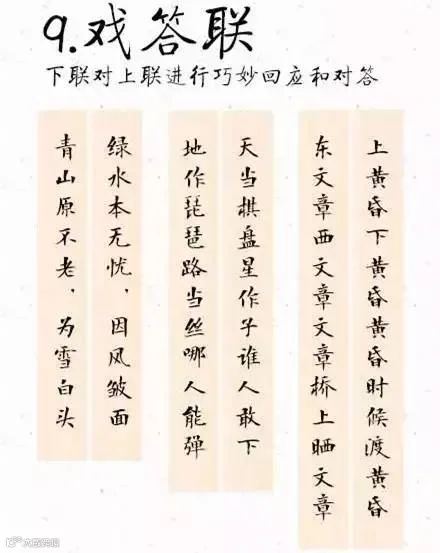 9.戏答联
下联对上联进行巧妙回应和对答
上黄昏下黄昏黄昏时候渡黄昏
东文章西文章文章桥上晒文章
天当棋盘星作子谁人敢下
地作琵琶路当丝哪人能弹
绿水本无忧，因风皱面
青山原不老，为雪白头